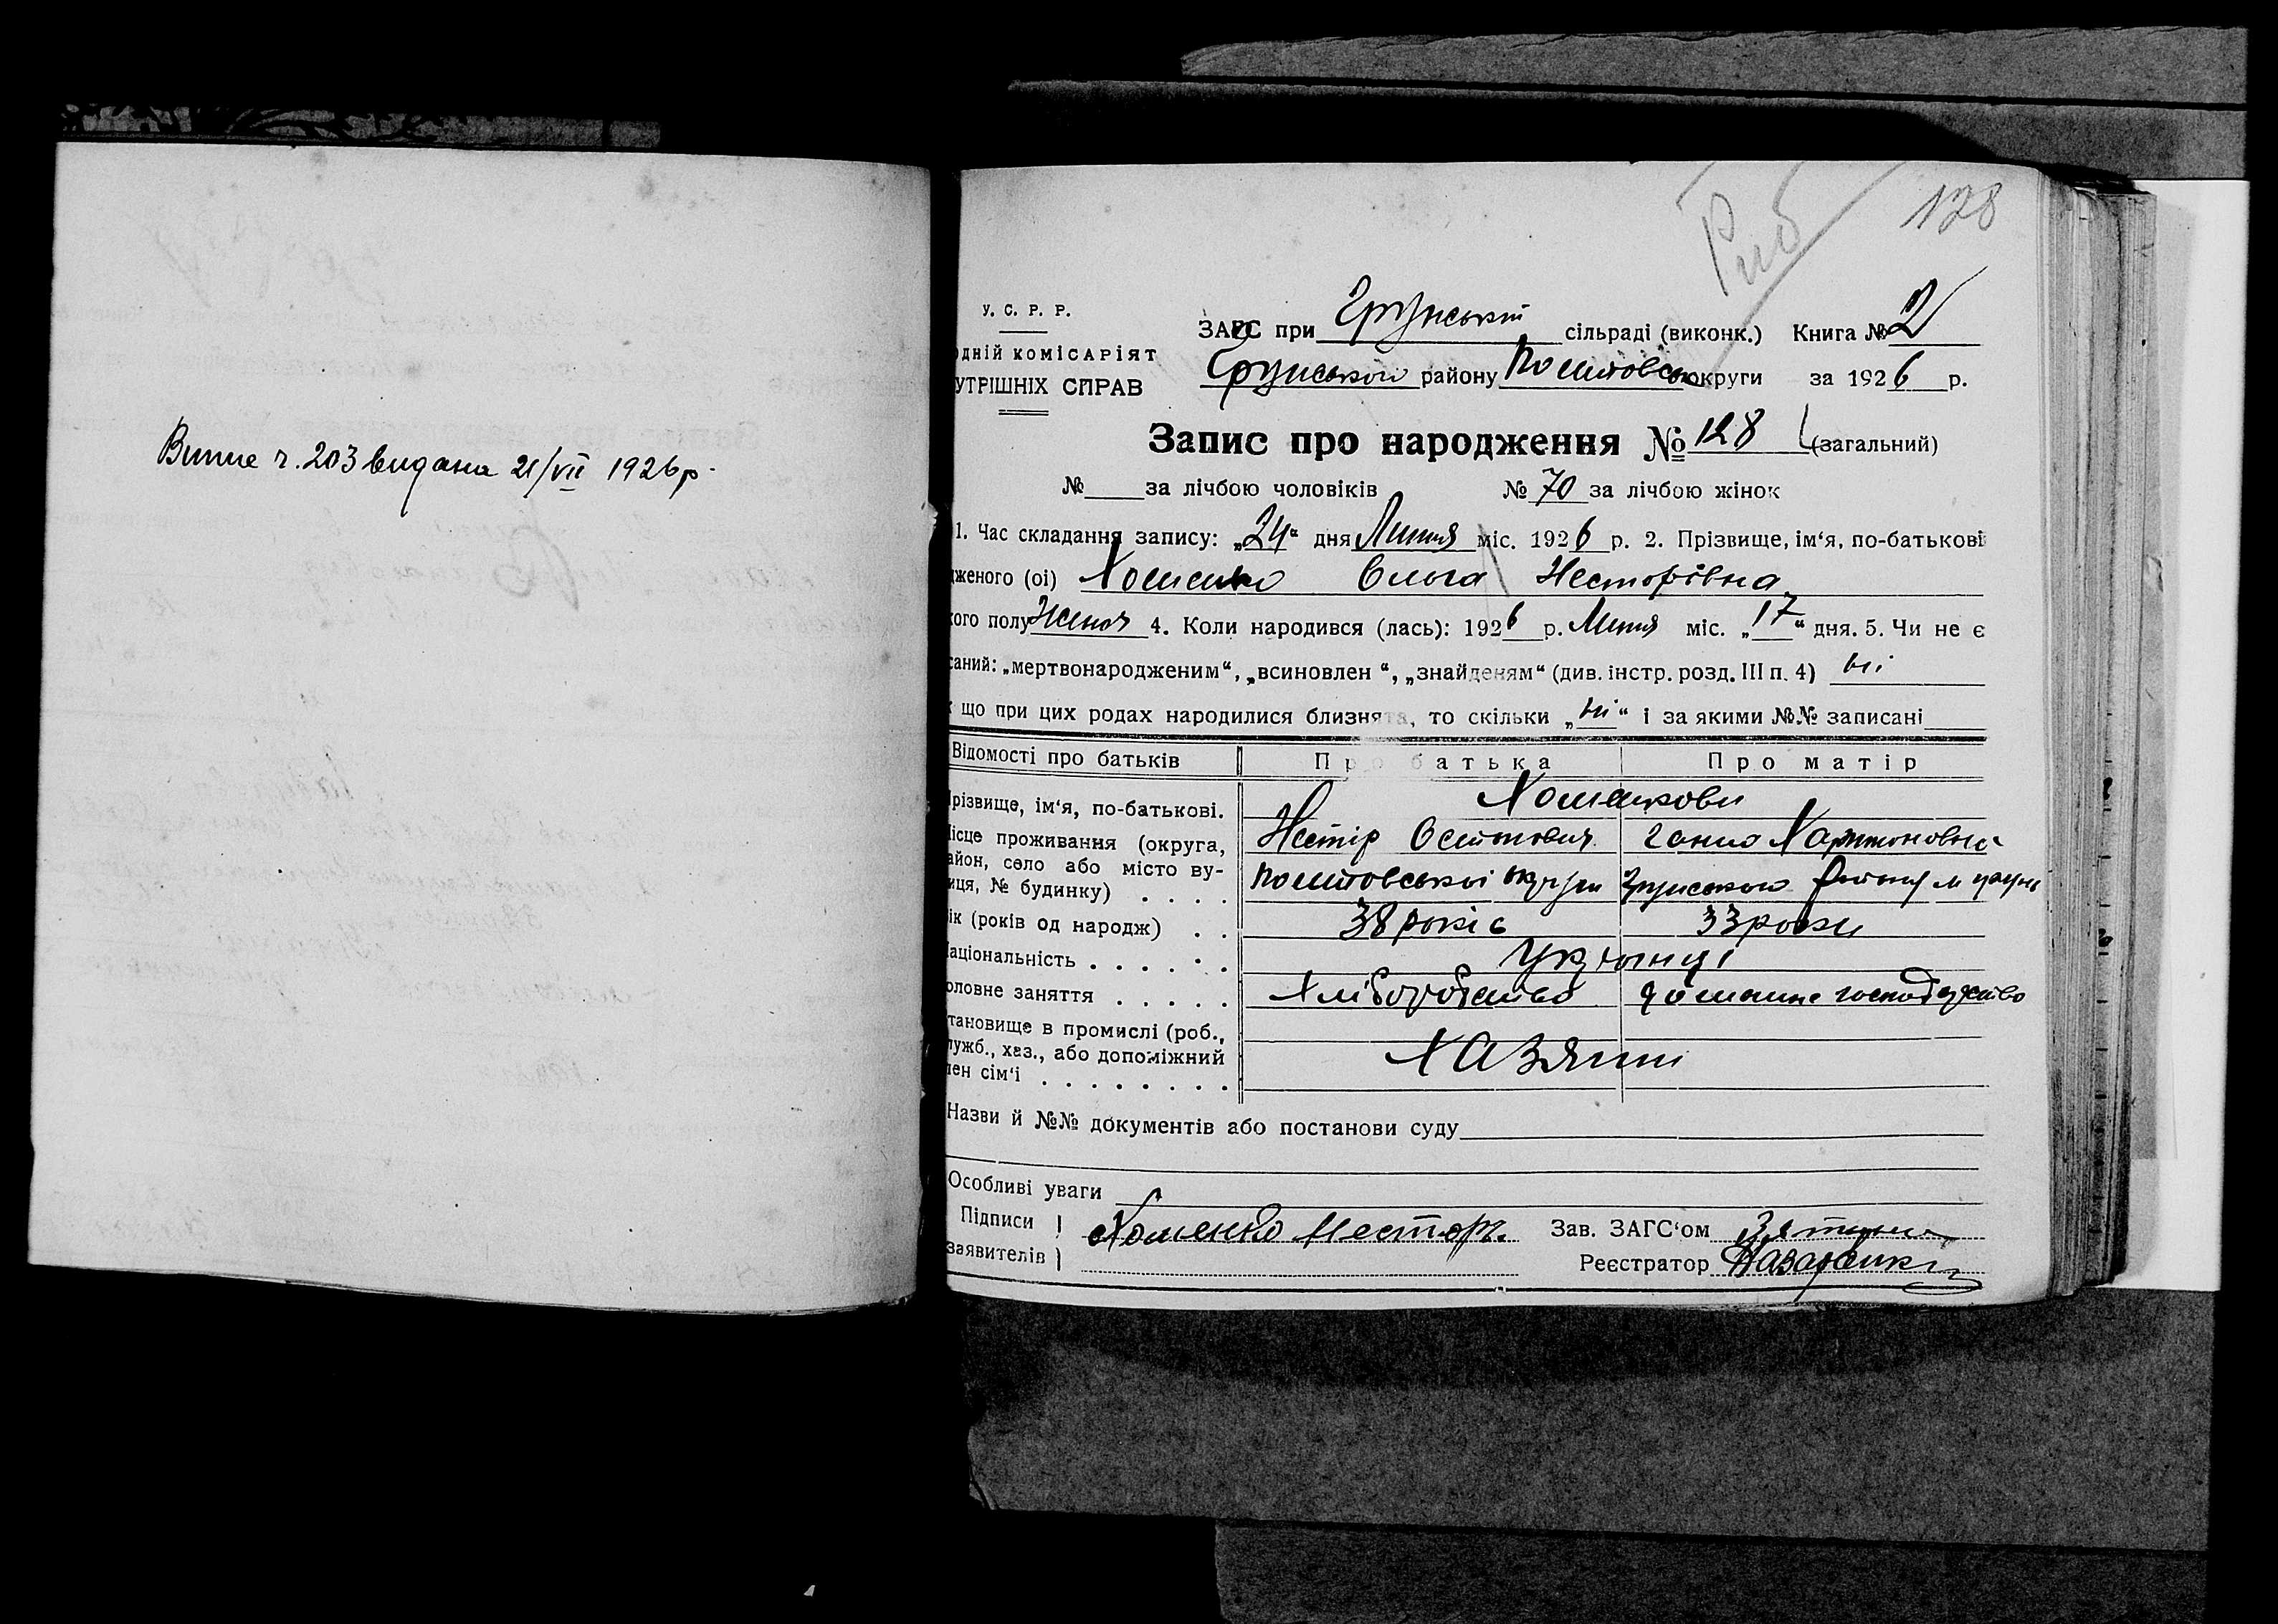 Випис ч. 203 видана 21/VII 1926 р.
Риб
128
У. С. Р. Р.
ЗАГС при Грунській сільраді (виконк.) Книга № 2
одній комісаріят
Грунського району Полтавської округи за 1926 р.
утрішніх справ
Запис про народження № 128 (загальний)
№ за лічбою чоловіків № 70 за лічбою жінок
1. Час складання запису: „24“ дня Липня міс. 1926 р. 2. Прізвище, ім‘я, по-батькові
дженого (ої) Хоменко Ольга Несторівна
кого полу Жіноч 4. Коли народився (лась): 1926 р. Липня міс. „17“ дня. 5. Чи не є
саний: „мертвонародженим“, „всиновлен “, „знайденям“ (див. інстр. розд. III п. 4) ні
що при цих родах народилися близнята, то скільки „ні“ і за якими №№ записані
Відомості про батьків Про батька Про матір
різвище, ім‘я, по-батькові. Хоменкови
Нестір Остапович Ганна Харитоновна
ісце проживання (округа,
айон, село або місто ву-
иця, № будинку) . . . . Полтавської округи Грунського району м Грунь
ік (років од народж) . . 38 років 33 роки
аціональність . . . . . . Українці
оловне заняття . . . . . Хліборобство домашне господарство
тановище в промислі (роб.,
лужб., хаз., або допоміжний
лен сім‘ї . . . . . . . . Хазяини
Назви й №№ документів або постанови суду
Особливі уваги
Підписи Хоменко Несторъ. Зав. ЗАГС‘ом
заявителів Реєстратор Назаренко